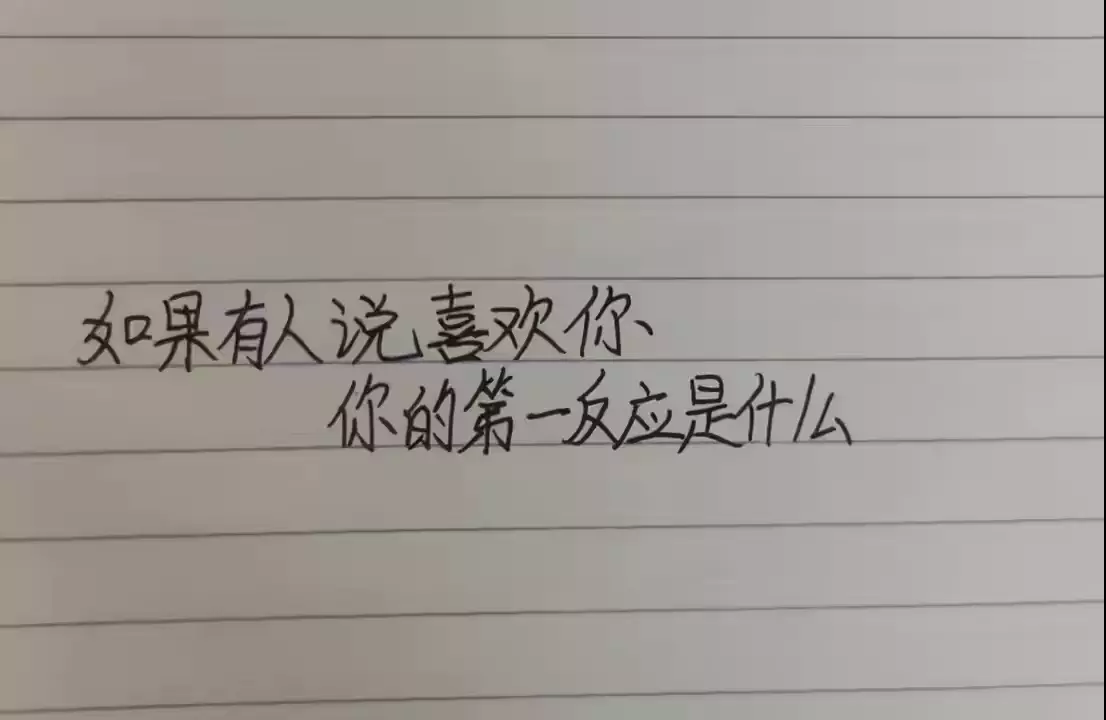 如果有人说喜欢你、
你的第一反应是什么